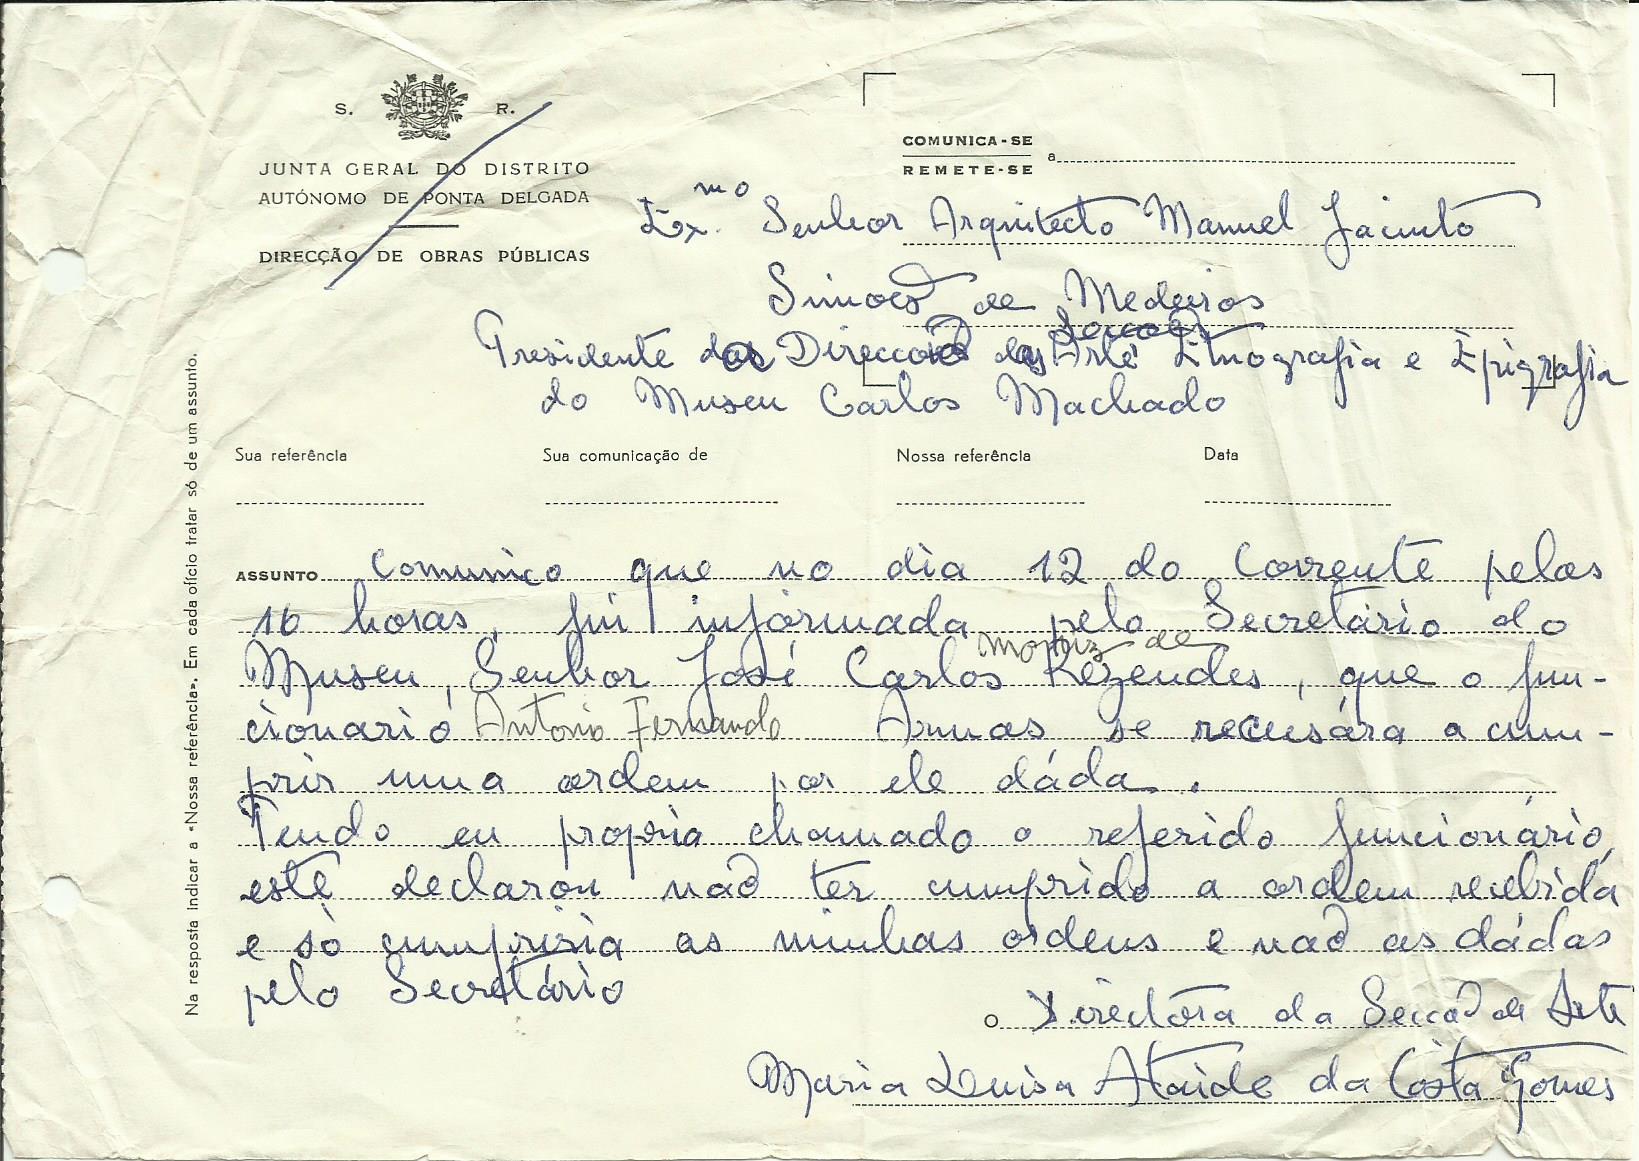 S. R.
JUNTA GERAL DO DISTRITO
AUTÓNOMO DE PONTA DELGADA
DIRECÇÃO DE OBRAS PÚBLICAS
COMUNICA-SE
REMETE-SE
a
Exmo. Senhor Arquitecto Manuel Jacinto
Simoes de Medeiros
Presidente das Direccoes das Arte Etnografia e Epigrafia
do Museu Carlos Machado
Sua referência Sua comunicação de Nossa referência Data
Na resposta indicar a «Nossa referência». Em cada ofício tratar só de um assunto.
ASSUNTO Comunico que no dia 12 do Corrente pelas
16 horas, fui informada pelo Secretário do
Moniz de
Museu, Senhor José Carlos Rezendes, que o fun-
cionario Antonio Fernando Armas se recusára a cum-
prir uma ordem por ele dáda.
Tendo eu propria chamado o referido funcionário,
este declarou não ter cumprido a ordem recebida
e só cumpriria as minhas ordens e nao as dádas
pelo Secretário
O Directora da Seccão de Arte
Maria Luisa Ataide da Costa Gomes